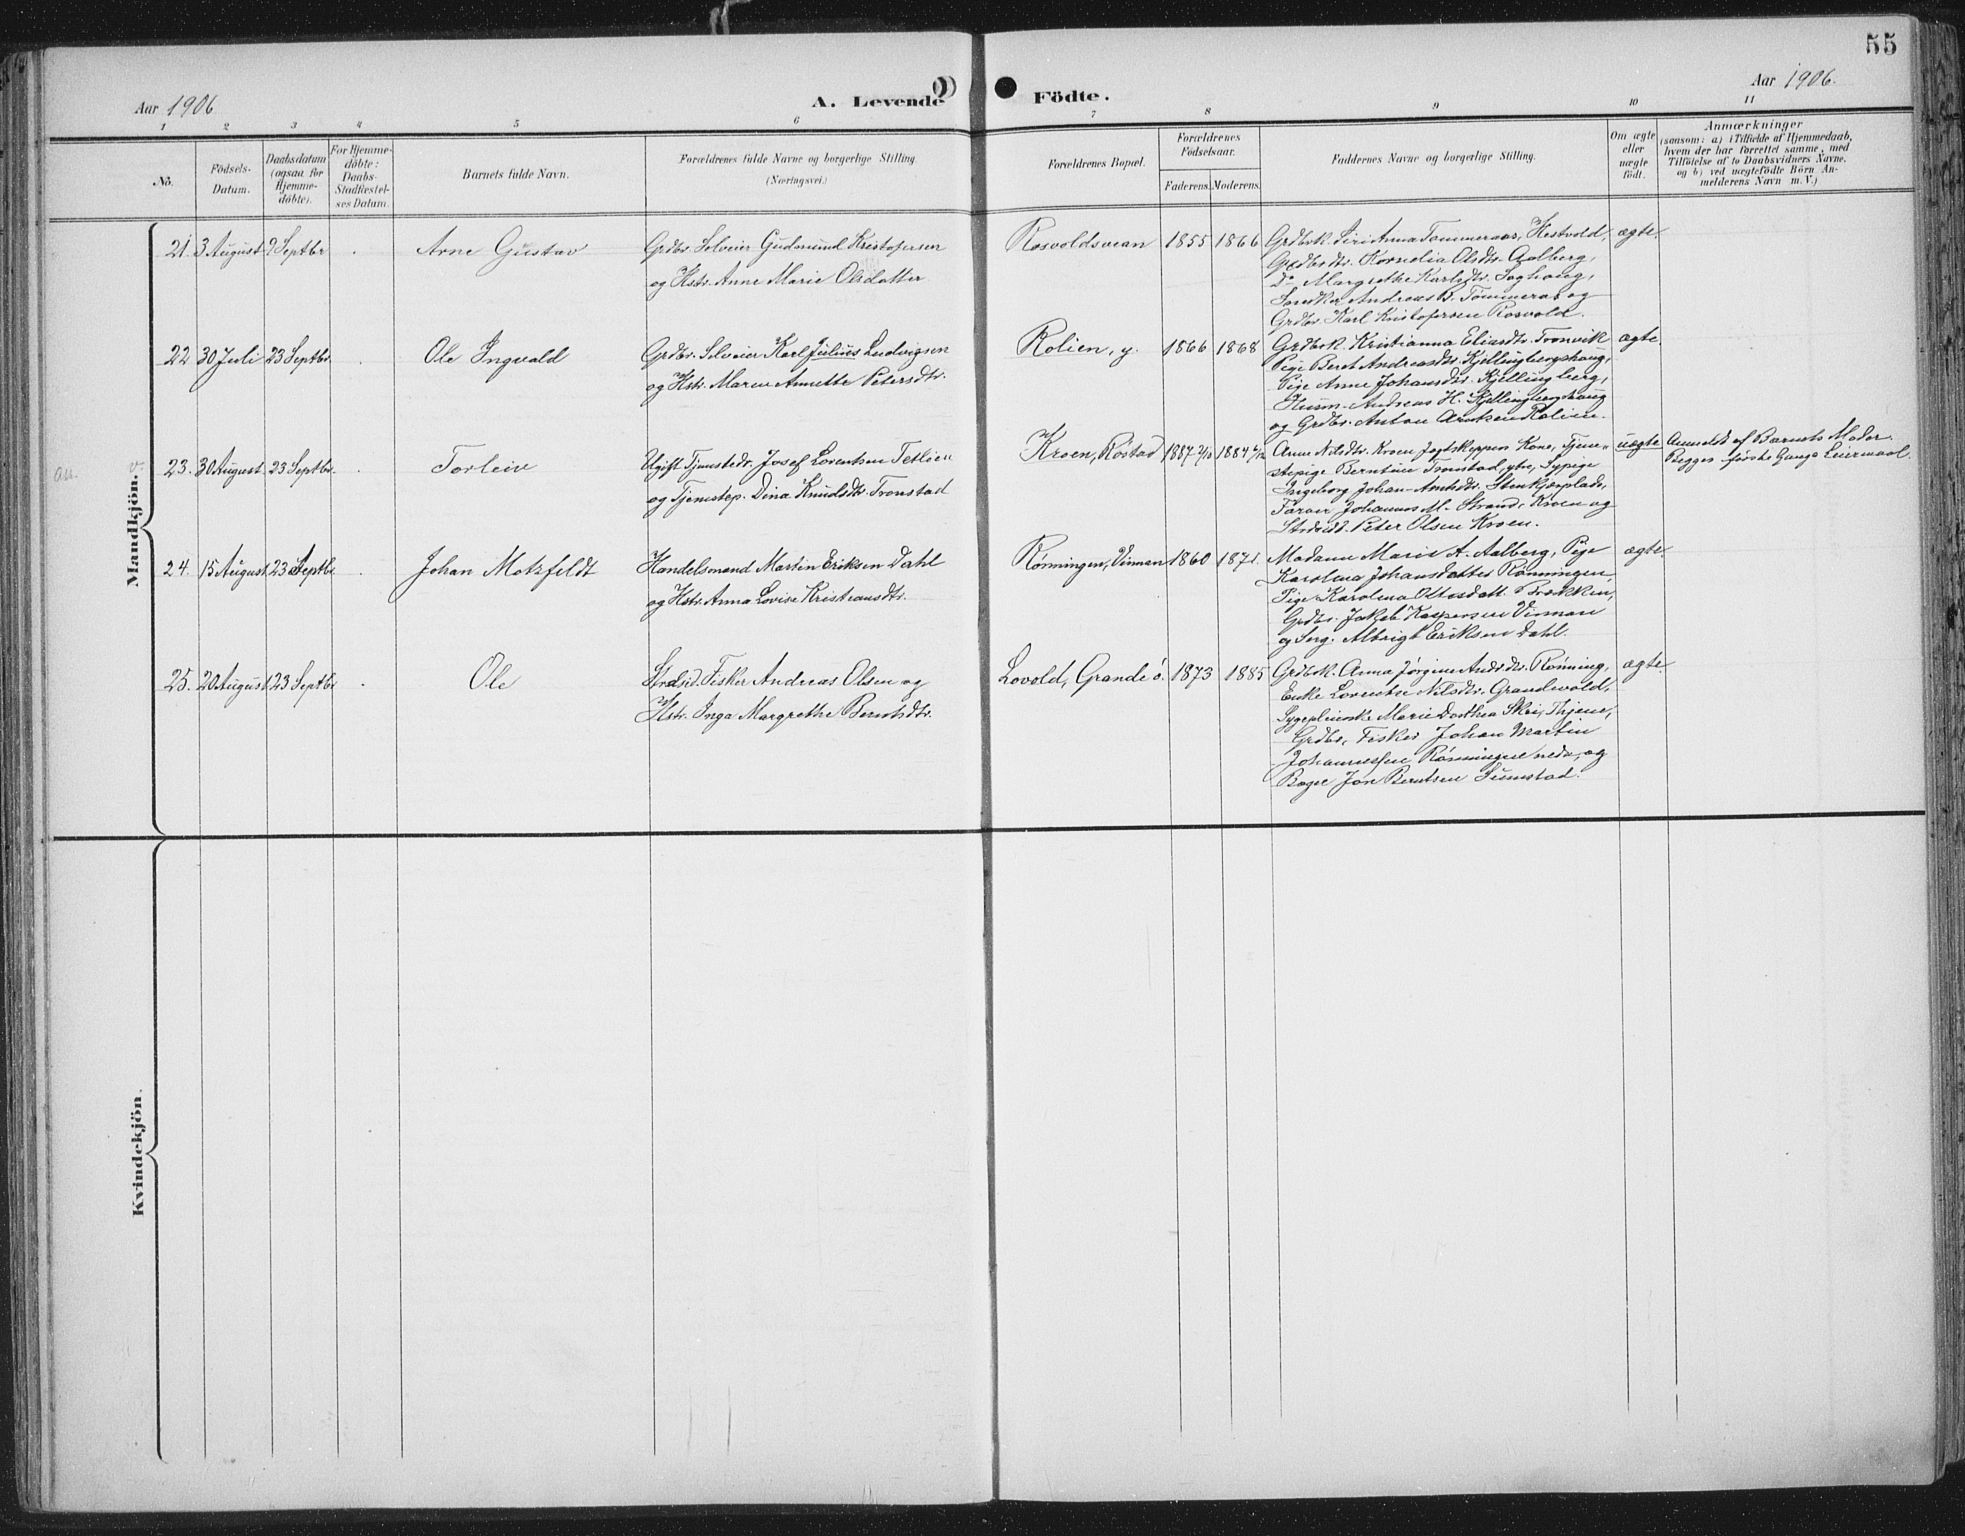 55
Aar 1906
A. Levende
Födte.
Aar 1906.
1 2 3 4 5 6 7 8 9 10 11
No.
Födsels-
Datum.
Daabsdatum
(ogsaa for
Hjemme-
döbte).
For Hjemme-
döbte:
Daabs-
Stadfæstel-
ses Datum.
Barnets fulde Navn.
Forældrenes fulde Navne og borgerlige Stilling.
(Næringsvei.)
Forældrenes Bopæl.
Forældrenes
Födselsaar.
Faderens. Moderens.
Faddernes Navne og borgerlige Stilling.
Om ægte
eller
uægte
födt.
Anmærkninger
(saasom: a) i Tilfælde af Hjemmedaab,
hvem der har forrettet samme, med
Tilföielse af to Daabsvidners Navne,
og b) ved uægtefödte Börn An-
melderens Navn m. V.)
Mandkjön.
21. 3 August 9 Septbr Arne Gustav
Grdbr. Selveier Gudmund Kristofersen
og Hstr. Anne Marie Olsdatter
Rosvoldsvean 1855 1866
Grdbrk. Siri Anna Tømmeraas, Hestvold,
Grdbrdtr. Kornelia Olsdtr. Aalberg,
Do Margrethe Karlsdtr. Saghaug,
Snedker Andreas B. Tømmeraas og
Grdbr. Karl Kristofersen Rosvold.
ægte.
22 30 Juli 23 Septbr. Ole Ingvald
Grdbr. Selveier Karl Julius Ludvigsen
og Hstr. Maren Annette Petersdtr.
Rolien, y. 1866 1868
Grdbrk. Kristianna Eliasdtr. Tronvik
Pige Beret Andreasdtr. Kjellingberghaug,
Pige Anne Johansdtr. Kjellingberg,
Husm. Andreas H. Kjellingberghaug
og Grdbr. Anton Rolien.
ægte.
23. 30 August 23 Septbr. Torleiv
Ugift Tjenestedr. Josef Lorentsen Tetlien
og Tjenestep. Dina Knudsdtr. Tronstad
Kroen, Røstad 1887 1884
Anne Nilsdtr. Kroen Jegtskippers Kone, Tjene-
stepige Berntine Tronstad, ytre, Sypige
Ingeborg Johan-Arntsdtr. Stenkjærplads,
Farver Johannes M. Strand, Kroen og
Peter Olsen Kroen.
uægte
Anmeldt af Barnets Moder.
Begges første Gangs Leiermaal.
24. 15 August 23 Septbr Johan Motzfeldt
Handelsmand Martin Eriksen Dahl
og Hstr. Anna Lovise Kristiansdtr.
Rønningen, Vinnan 1860 1871.
Madame Marie A. Aalberg, Pige
Karolina Johansdatter Rønningen,
Pige Karolina Ottosdatt. Trækken,
Grdbr. Jakob Kaspersen Vinnan
og Serg. Albrigt Eriksen Dahl.
ægte
25. 20 August 23 Septbr Ole
Strdsid. Fisker Andreas Olsen og
Hstr. Inga Margrethe Berntsdtr.
Lovold, Grande ö. 1873 1885
Grdbrk. Anna Jørgine Andrdtr. Rønning,
Enke Lorentse Nilsdtr. Grandevold,
Sygepleierske Marie Dorthea Skei, Thjene,
Grdbr., Fisker Johan Martin
Johannessen Rønningen nedr. og
Bager Jon Berntsen Sunnstad.
ægte
Kvindekjön.